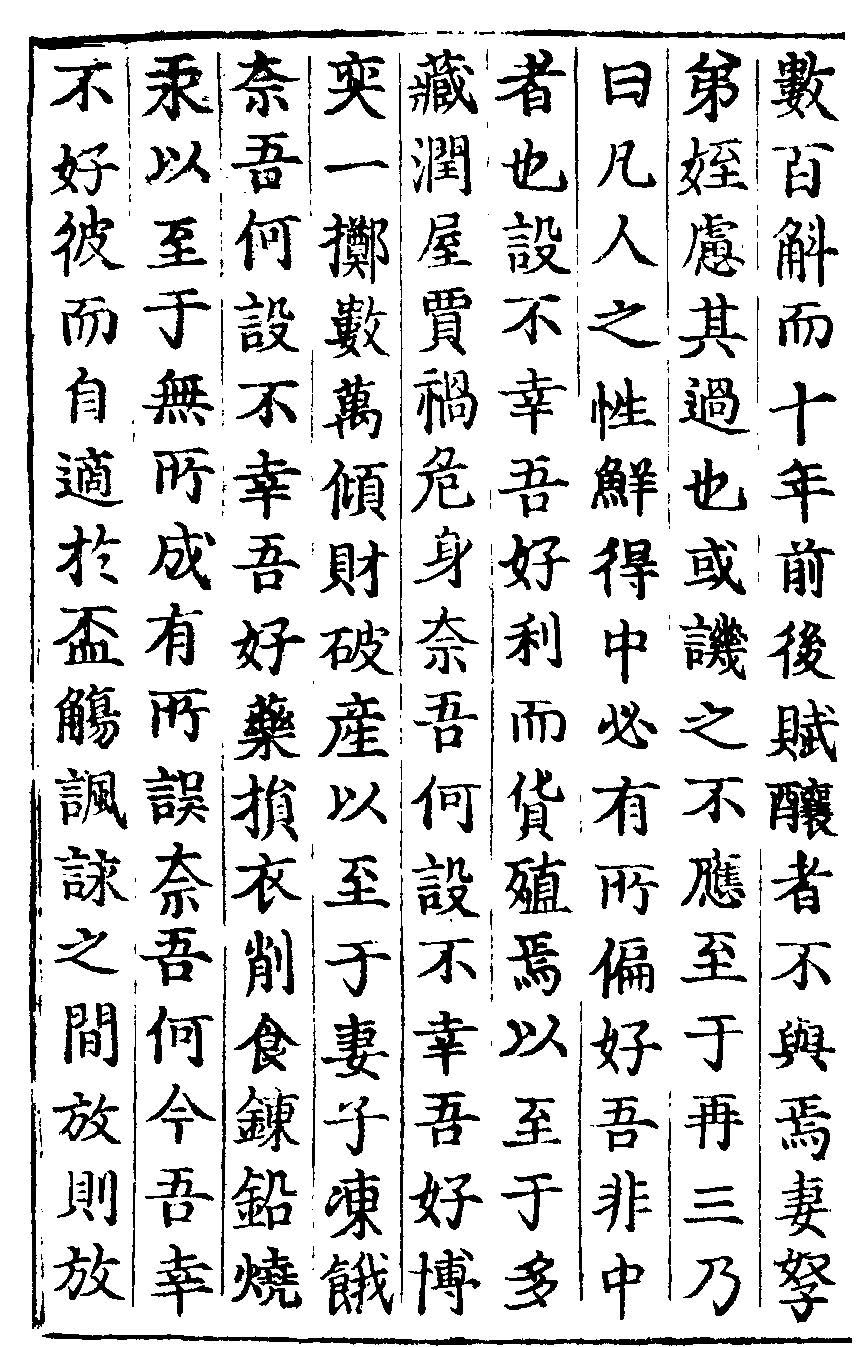 數百斛而十年前後賦釀者不與焉妻孥
弟姪慮其過也或譏之不應至于再三乃
曰凡人之性鮮得中必有所偏好吾非中
者也設不幸吾好利而貨殖焉以至于多
藏潤屋賈禍危身奈吾何設不幸吾好博
奕一擲數萬傾財破産以至于妻子凍餓
奈吾何設不幸吾好藥損衣削食鍊鉛燒
汞以至于無所成有所誤奈吾何今吾幸
不好彼而自適於盃觴諷詠之間放則放